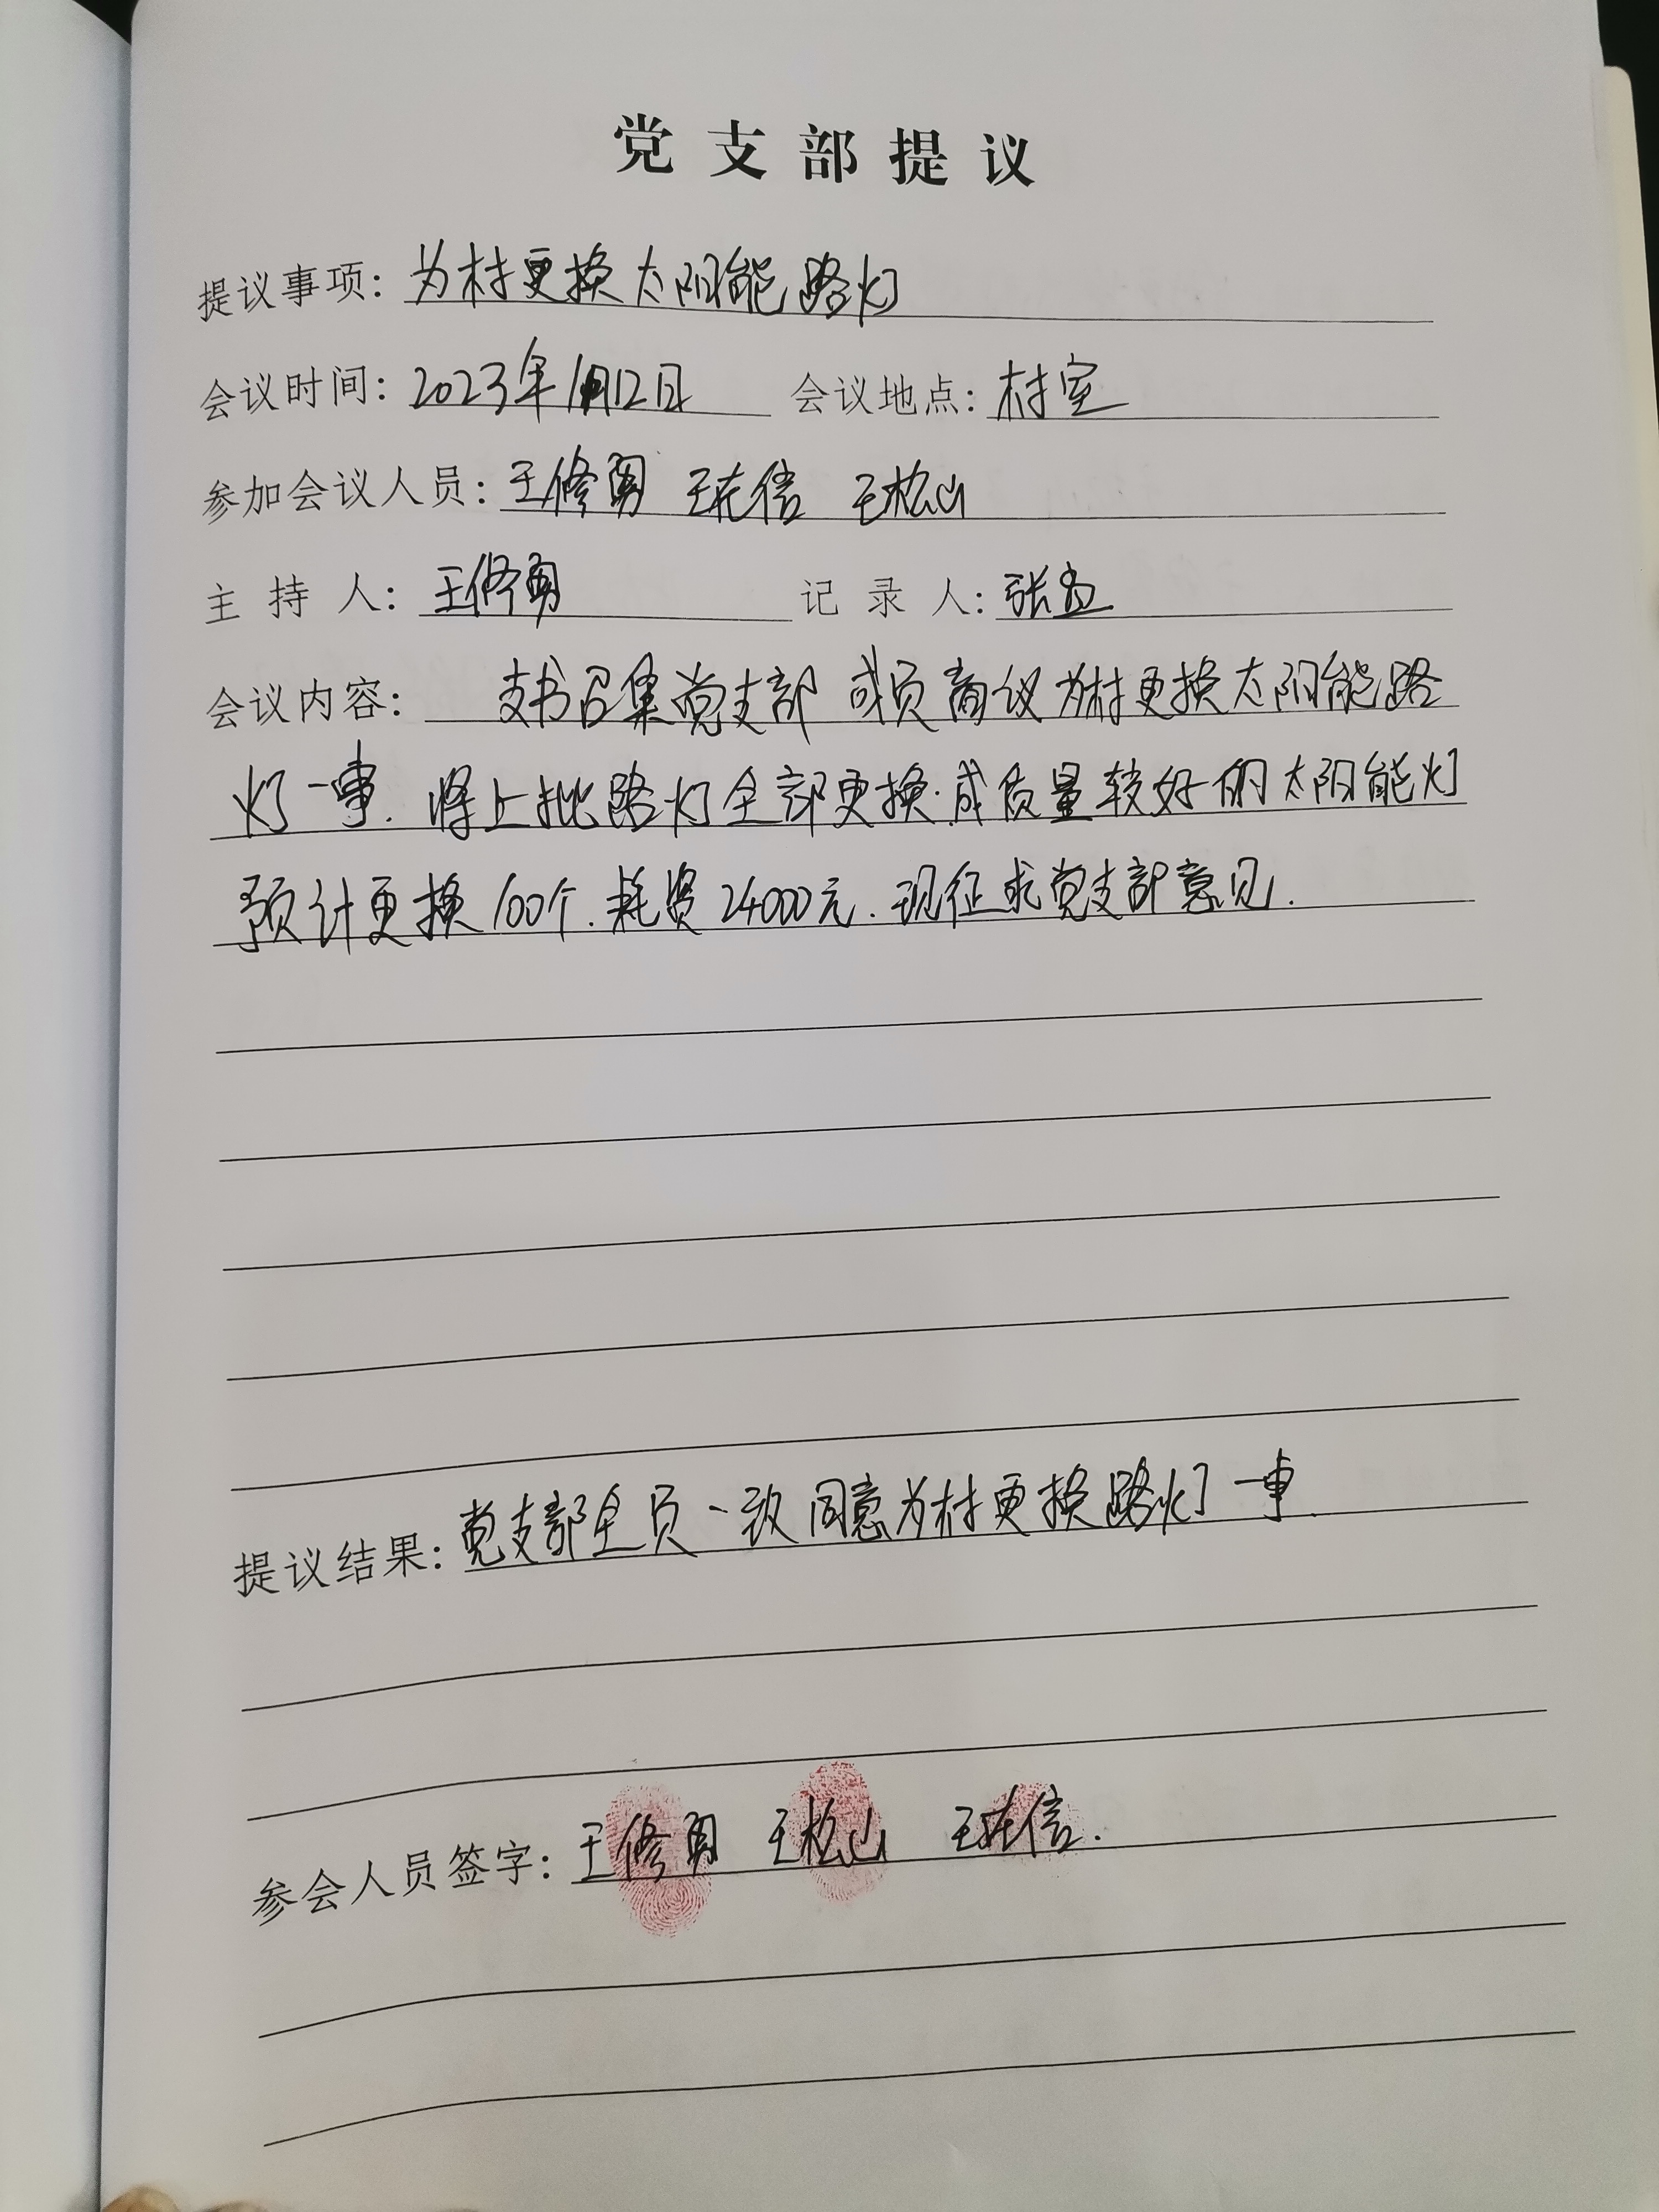 党支部提议
提议事项：为村更换太阳能路灯
会议时间：2023年1月12日 会议地点：村室
参加会议人员：王修勇 王在信 王松山
主持人：王修勇 记录人：张孟
会议内容：支书召集党支部成员商议为村更换太阳能路
灯一事.将上批路灯全部更换成质量较好的太阳能灯
预计更换100个.耗资24000元.现征求党支部意见.
提议结果：党支部全员一致同意为村更换路灯一事.
参会人员签字：王修勇 王松山 王在信.